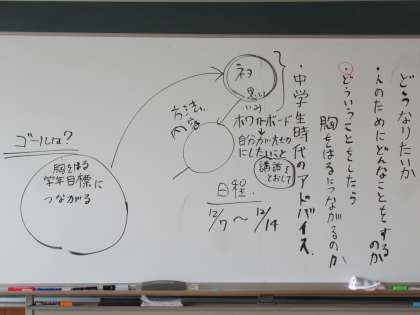 どうなりたか
・そのためにどんなことをする
のか
・どういうことをしたら
胸をはるにつながるのか
・中学生時代のアドバイス.
ネタ
思い
方法.
内容
ホワイトボード
自分が大切
にしたいこと
講話を
とおして
日程.
12/7 〜 12/14
ゴールは?
胸をはる
学年目標に
つながる